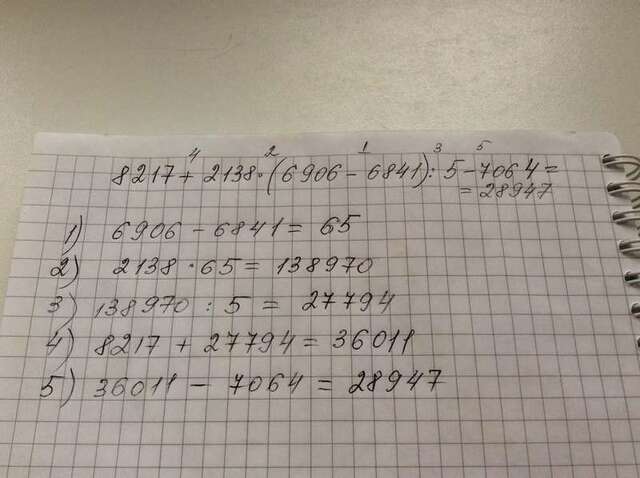 4 2 1 3 5
8217 + 2138 · (6906 - 6841) : 5 - 7064 =
= 28947
1) 6906 - 6841 = 65
2) 2138 · 65 = 138970
3) 138970 : 5 = 27794
4) 8217 + 27794 = 36011
5) 36011 - 7064 = 28947